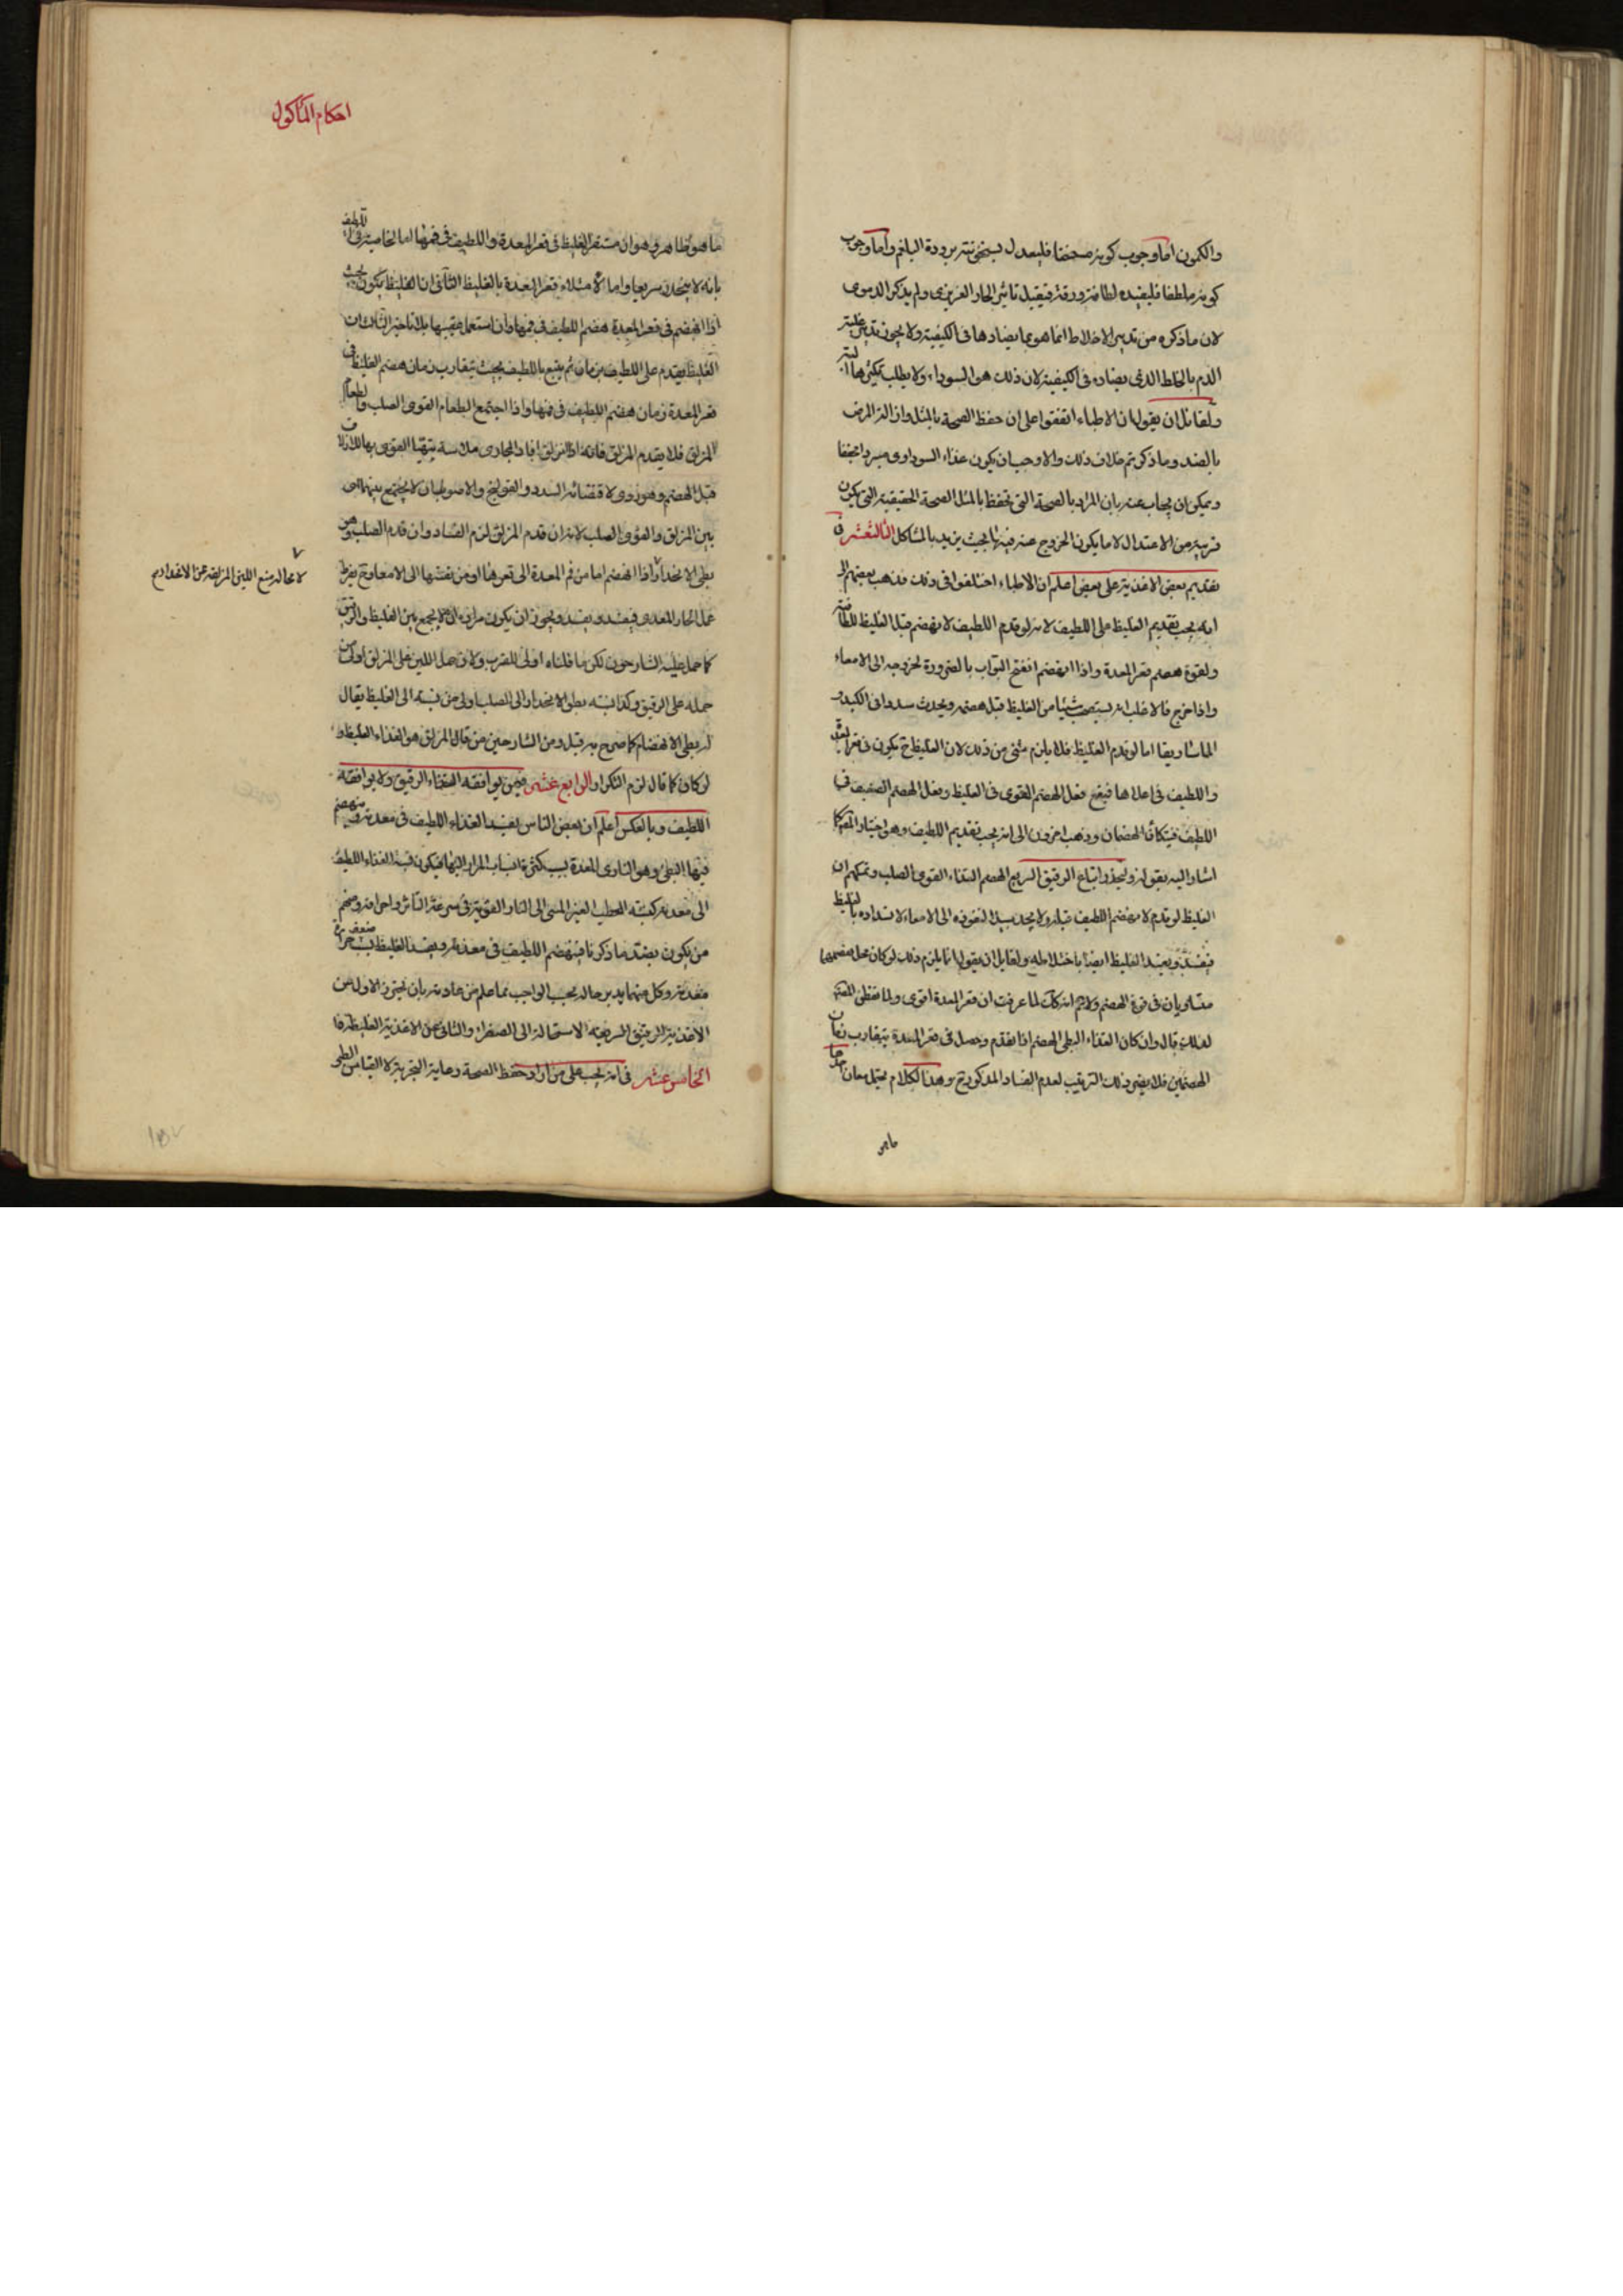 والكمون اما وجوب كونه مسخنا فليعدل بسخونته برودة البلغم واما وجوب
كونه ملطفا فليفيده لطافة ورقة فيقبل تاثير الحار الغريزى ولم يذكر الدموى
لان ما ذكره من تدبير الاخلاط انما هو بما يضادها فى الكيفية ولا يجوز تدبير غلبة
الدم بالخلط الذى يضاده فى الكيفية لان ذلك هو السوداء ولا يطلب تكثيرها
ولقائل ان يقول ان الاطباء اتفقوا على ان حفظ الصحة بالمثل وازالة المرض
بالضد وما ذكرتم خلاف ذلك والا وجب ان يكون غذاء السوداوى مبردا مجففا
ويمكن ان يجاب عنه بان المراد بالصحة التى تحفظ بالمثل الصحة الحقيقية التى يكون
قريبة من الاعتدال لا ما يكون الخروج عنه فيها بحيث يزيد بالمشاكل الثالث عشر فى
تقديم بعض الاغذية على بعض اعلم ان الاطباء اختلفوا فى ذلك فذهب بعضهم الى
انه يجب تقديم الغليظ على اللطيف لانه لو قدم اللطيف لانهضم قبل الغليظ للطافته
ولقوة هضم قعر المعدة واذا انهضم انفتح البواب بالضرورة لخروجه الى الامعاء
واذا خرج فالاغلب انه يستصحب شيئا من الغليظ قبل هضمه ويحدث سددا فى الكبد و
الماساريقا اما لو قدم الغليظ فلا يلزم شئ من ذلك لان الغليظ ح يكون فى قعر المعدة
واللطيف فى اعلاها فيقع فعل الهضم القوى فى الغليظ وفعل الهضم الضعيف فى
اللطيف فيتكافأ الهضمان وذهب اخرون الى انه يجب تقديم اللطيف وهو اختيار المص كما
اشار اليه بقوله وليحذر اتباع الرقيق السريع الهضم الغذاء القوى الصلب وتمسكهم ان
الغليظ لو قدم لانهضم اللطيف قبله ولا يجد سبيلا لنفوذه الى الامعاء لانسداده بالغليظ
فيفسد ويفسد الغليظ ايضا باختلاطه ولقايل ان يقول انما يلزم ذلك لو كان محل هضمهما
متساويان فى قوة الهضم ولا ثم انه كك لما عرفت ان قعر المعدة اقوى ولما تفطن المص
لذلك قال وان كان الغذاء البطئ الهضم اذا تقدم وحصل فى قعر المعدة يتقارب زمان
الهضمين فلا يضر ذلك الترتيب لعدم الفساد المذكور ح وهذا الكلام يحتمل معان احدها
ما هو
احكام الماكول
ما هو ظاهره وهو ان مستقر الغليظ فى قعر المعدة واللطيف فى فمها اما لخاصية فى اللطيف
بانه لا ينحدر سريعا واما لامتلاء قعر المعدة بالغليظ الثانى ان الغليظ يكون بحيث
اذا انهضم فى قعر المعدة هضم اللطيف فى فمها وان استعمل عقيبها بلا تاخير الثالث ان
الغليظ يقدم على اللطيف بزمان ثم يتبع باللطيف بحيث يتقارب زمان هضم الغليظ فى
قعر المعدة زمان هضم اللطيف فى فمها واذا اجتمع الطعام القوى الصلب والطعام
المزلق فلا يقدم المزلق فانه اذا انزلق افاد المجارى ملاسة يتهيا القوى بها للانزلاق
قبل الهضم وهو ردى لاقتضائه السدد والقولنج والاصوب ان لا يجتمع بينهما اى
بين المزلق والقوى الصلب لانه ان قدم المزلق لزم الفساد وان قدم الصلب وهو
بطئ الانحدار واذا انهضم اما من فم المعدة الى قعرها او من نفسها الى الامعاء ح يفرط
لا محالة يمنع اللين المزلق عن الانحدار ح
عمل الحار المعدى فيفسد ويفسد ويجوز ان يكون مراده ان لا يجمع بين الغليظ والرقيق
كما حمل عليه الشارحون لكن ما قلناه اولى للقرب ولان حمل اللين على المزلق اولى من
حمله على الرقيق وكذا نسبة بطئ الانحدار الى الصلب اولى من نسبته الى الغليظ يقال
له بطئ الانهضام كما صرح به قبل ومن الشارحين من قال المزلق هو الغذاء الغليظ و
لو كان كما قال لزم التكرار الرابع عشر فيمن يوافقه الغذاء الرقيق ولا يوافقه
اللطيف وبالعكس اعلم ان بعض الناس يفسد الغذاء اللطيف فى معدته وينهضم
فيها البطئ وهو النارى المعدة بسبب كثرة انصباب المرار اليها فيكون نسبة الغذاء اللطيف
الى معدته كنسبة الحطب الغير المتين الى النار القوية فى سرعة التاثر واحراقه ومنهم
من يكون بضد ما ذكرنا فينهضم اللطيف فى معدته ويفسد الغليظ لضعف حرارة
معدته وكل منهما يدبر حاله بحسب الواجب مما علم من عادته بان يحترز الاول من
الاغذية الرقيق السريعة الاستحالة الى الصفراء والثانى عن الاغذية الغليظة
الخامس عشر فى انه يجب على من اراد حفظ الصحة رعاية التجربة لا القياس الطبى
١٥٧